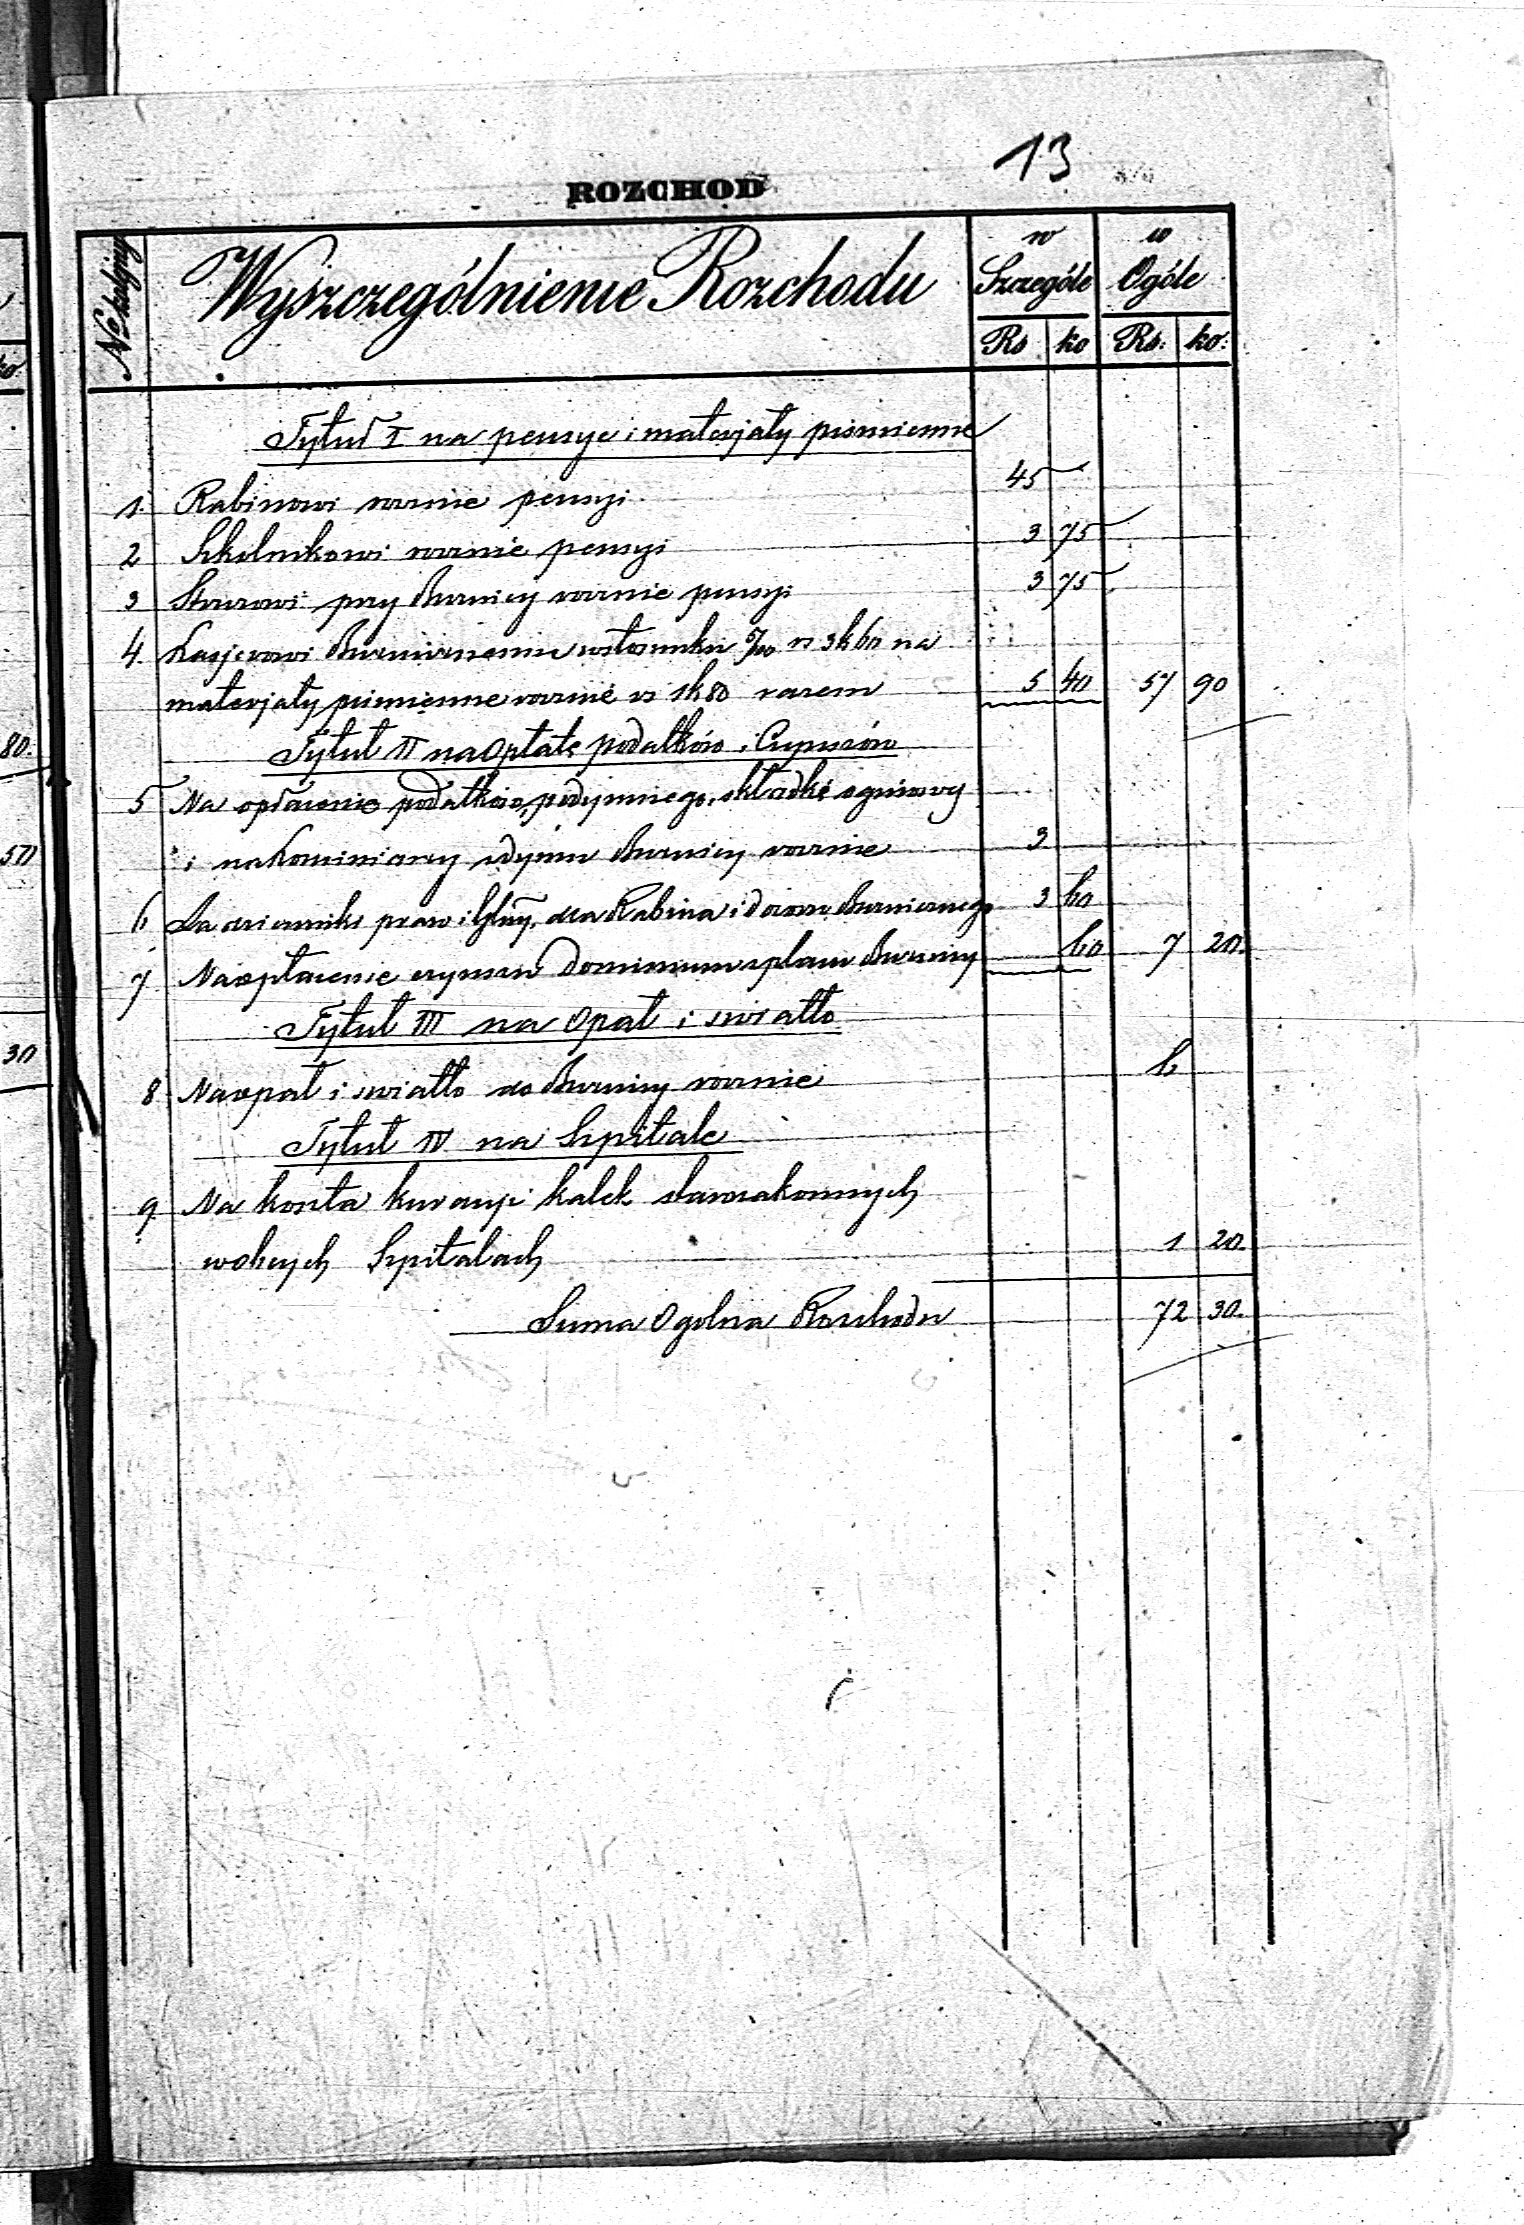 13
ROZCHOD
No kolejny
Wyszczególnienie Rozchodu
w Szczególe
w Ogóle
Rs ko Rs. ko:
Tytuł I na pensye i materjały piśmienne
1. Rabinowi rocznie pensyi 45
2 Szkolnikowi rocznie pensyi 3 75
3 Stróżowi przy Bożnicy rocznie pensyi 3 75
4. Kasjerowi Bożniczemu w stosunku 5/100 rs 3 k 60 na
materjały piśmienne rocznie rs 1 k 80 razem 5 40 57 90
Tytuł II na Opłatę podatków i Czynszów
5 Na opłacenie podatków, podymnego, składki ogniowy
i na kominiarzy z dymu Bożnicy rocznie 3
6 Za dzienniki praw i dla Rabina i dozoru Bożniczego 3 60
7 Na opłacenie czynszu Dominium z placu Bożnicy 60 7 20.
Tytuł III na Opał i swiatło
8 Na opał i swiatło do Bożnicy rocznie 6
Tytuł IV na Szpitale
9. Na koszta kuracyi kalek starozakonnych
w obcych Szpitalach 1 20.
Suma Ogolna Rozchodu 72 30.
80.
50
30